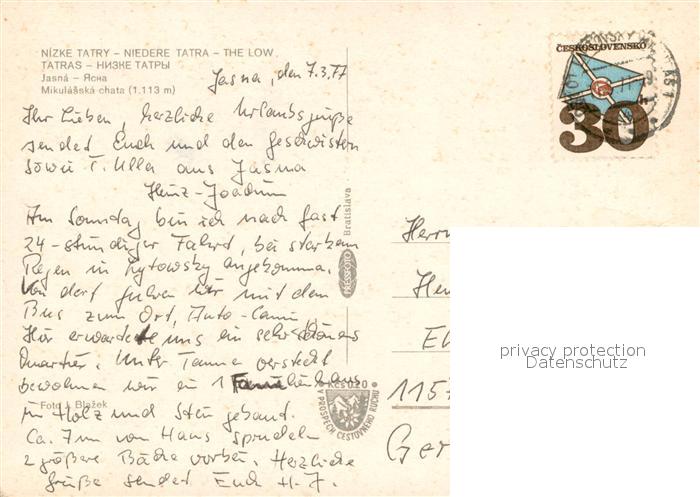 NÍZKE TATRY – NIEDERE TATRA – THE LOW
TATRAS – НИЗКЕ ТАТРЫ
Jasná – Ясна
Mikulášská chata (1.113 m)
Jasna, den 7.3.77
Ihr Lieben, herzliche Urlaubsgrüße
sendet Euch und den Geschwistern
sowie T. Ulla aus Jasna
Heinz-Joachim
Am Sonntag bin ich nach fast
24-stündiger Fahrt, bei starkem
Regen in angekommen.
Von dort fuhren wir mit dem
Bus zum Ort,
Hier erwartete uns ein sehr schönes
Quartier. Unter Tannen versteckt
bewohnen wir ein 1 Familienhaus
in Holz und Stein gebaut.
Ca. 7m vom Haus sprudeln
2 größere Bäche vorbei. Herzliche
Grüße sendet Euch H-J.
Foto J. Blažek
PRESSFOTO Bratislava
KČS 0,20
PROSPECH CESTOVNÉHO RUCHU
ČESKOSLOVENSKO
30
Herrn
He
El
1157
Ger
privacy protection
Datenschutz